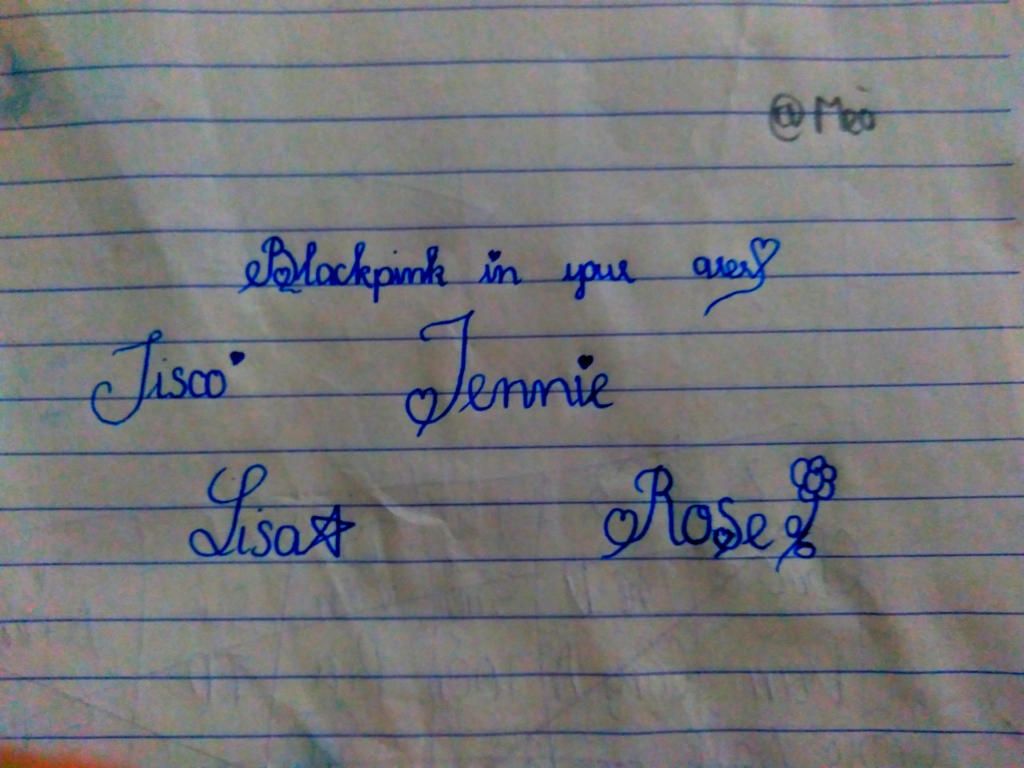 @Mèo
Blackpink in your area
Jisoo Jennie
Lisa Rose